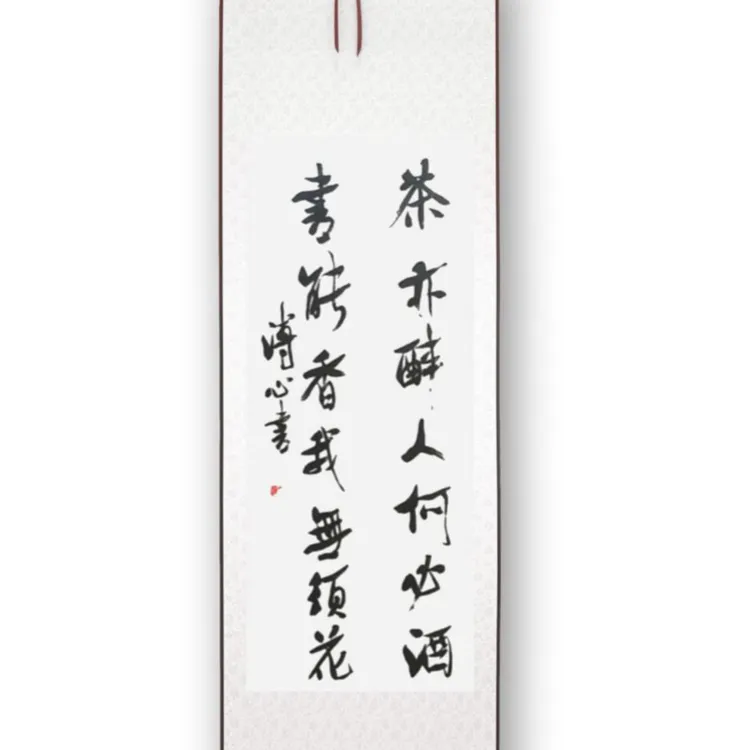 茶亦醉人何必酒
書能香我無須花
溥心書